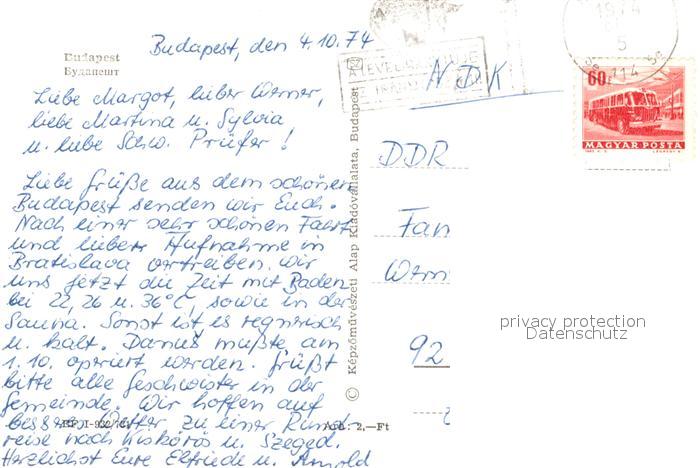 Budapest, den 4.10.74
Budapest
Будапешт
Liebe Margot, lieber Werner,
liebe Martina u. Sylvia
u. liebe Schw. Prüfer!
Liebe Grüße aus dem schönen
Budapest senden wir Euch.
Nach einer sehr schönen Fahrt
und lieber Aufnahme in
Bratislava vertreiben wir
uns jetzt die Zeit mit Baden
bei 22, 26 u. 36°C, sowie in der
Sauna. Sonst ist es regnerisch
u. kalt. Daniel mußte am
1.10. operiert werden. Grüßt
bitte alle Geschwister in der
Gemeinde. Wir hoffen auf
besseres Wetter zu einer Rund
reise nach Kiskörös u. Szeged.
Herzlichst Eure Elfriede u. Arnold
Ára: 2,—Ft
© Képzőművészeti Alap Kiadóvállalata, Budapest
NDK
DDR
Fam
Wern
92
1974
5
60f
MAGYAR POSTA
privacy protection
Datenschutz